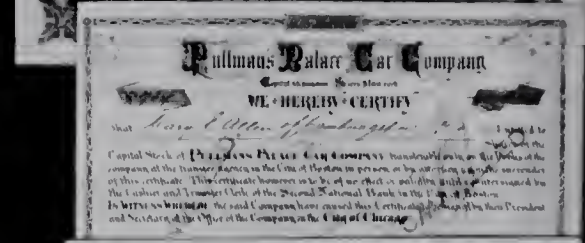 Pullmans Palace Car Company
WE HEREBY CERTIFY
that Mary E Allen of is entitled to
Shares of the
Capital Stock of PULLMANS PALACE CAR COMPANY transferable only on the Books of the
company at the transfer agency in the City of Boston in person or by attorney on the surrender
of this certificate This certificate however is to be of no effect or validity until countersigned by
the Cashier and Transfer Clerk of the Second National Bank in the City of Boston
IN WITNESS WHEREOF the said Company have caused this Certificate to be signed by their President
and Secretary at the Office of the Company in the City of Chicago